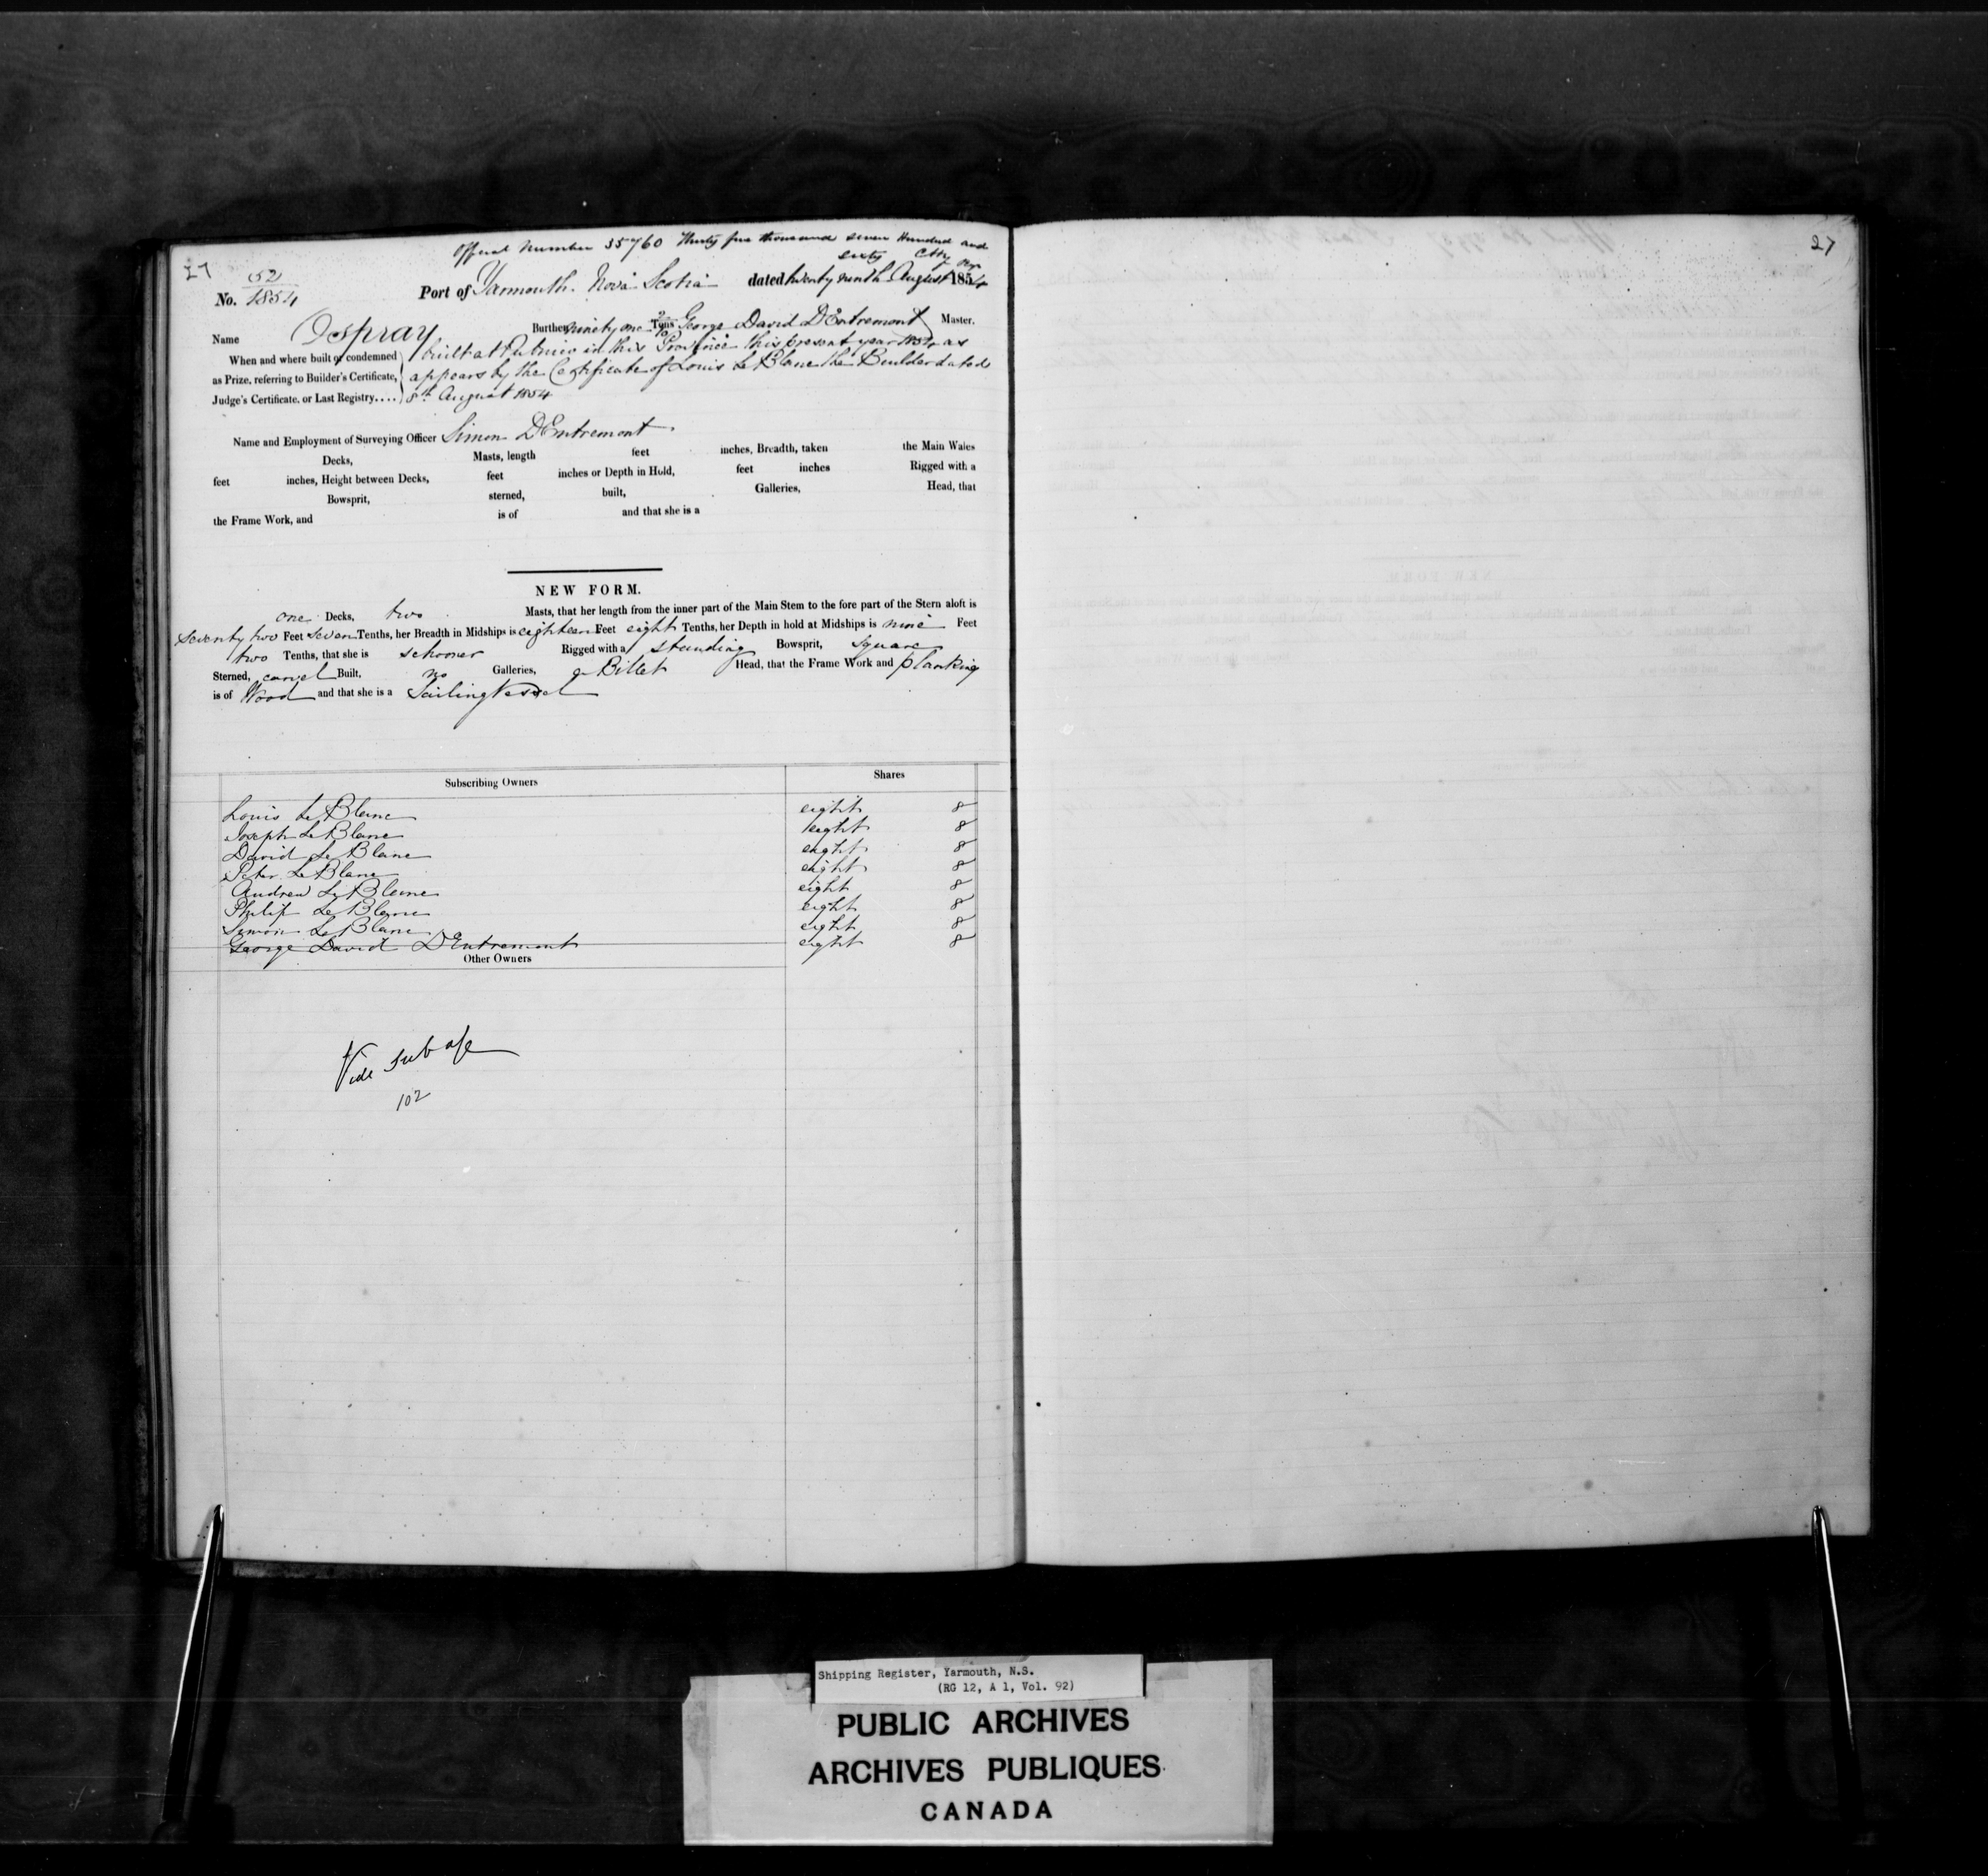 Official Number 35760 Thirty five thousand seven Hundred and
sixty
27
27
No. 52/1854 Port of Yarmouth. Nova Scotia dated twenty ninth August 1854
Name Ospray Burthen ninety one Tons George David DEntremont Master.
When and where built or condemned built at Pubnico in this Province this present year 1854 as
as Prize, referring to Builder's Certificate, appears by the Certificate of Louis Le Blanc the Builder dated
Judge's Certificate, or Last Registry.... 8th August 1854
Name and Employment of Surveying Officer Simon DEntremont
Decks, Masts, length feet inches, Breadth, taken the Main Wales
feet inches, Height between Decks, feet inches or Depth in Hold, feet inches Rigged with a
Bowsprit, sterned, built, Galleries, Head, that
the Frame Work, and is of and that she is a
NEW FORM.
one Decks, two Masts, that her length from the inner part of the Main Stem to the fore part of the Stern aloft is
Seventy two Feet Seven Tenths, her Breadth in Midships is eighteen Feet eight Tenths, her Depth in hold at Midships is nine Feet
two Tenths, that she is schooner Rigged with a standing Bowsprit, square
Sterned, carvel Built, no Galleries, a Billet Head, that the Frame Work and planking
is of Wood and that she is a Sailing Vessel
Subscribing Owners Shares
Louis Le Blanc eight 8
Joseph Le Blanc eight 8
David Le Blanc eight 8
Peter Le Blanc eight 8
Andrew Le Blanc eight 8
Philip Le Blanc eight 8
Simon Le Blanc eight 8
George David DEntremont eight 8
Other Owners
Vide
102
Shipping Register, Yarmouth, N.S.
(RG 12, A 1, Vol. 92)
PUBLIC ARCHIVES
ARCHIVES PUBLIQUES
CANADA